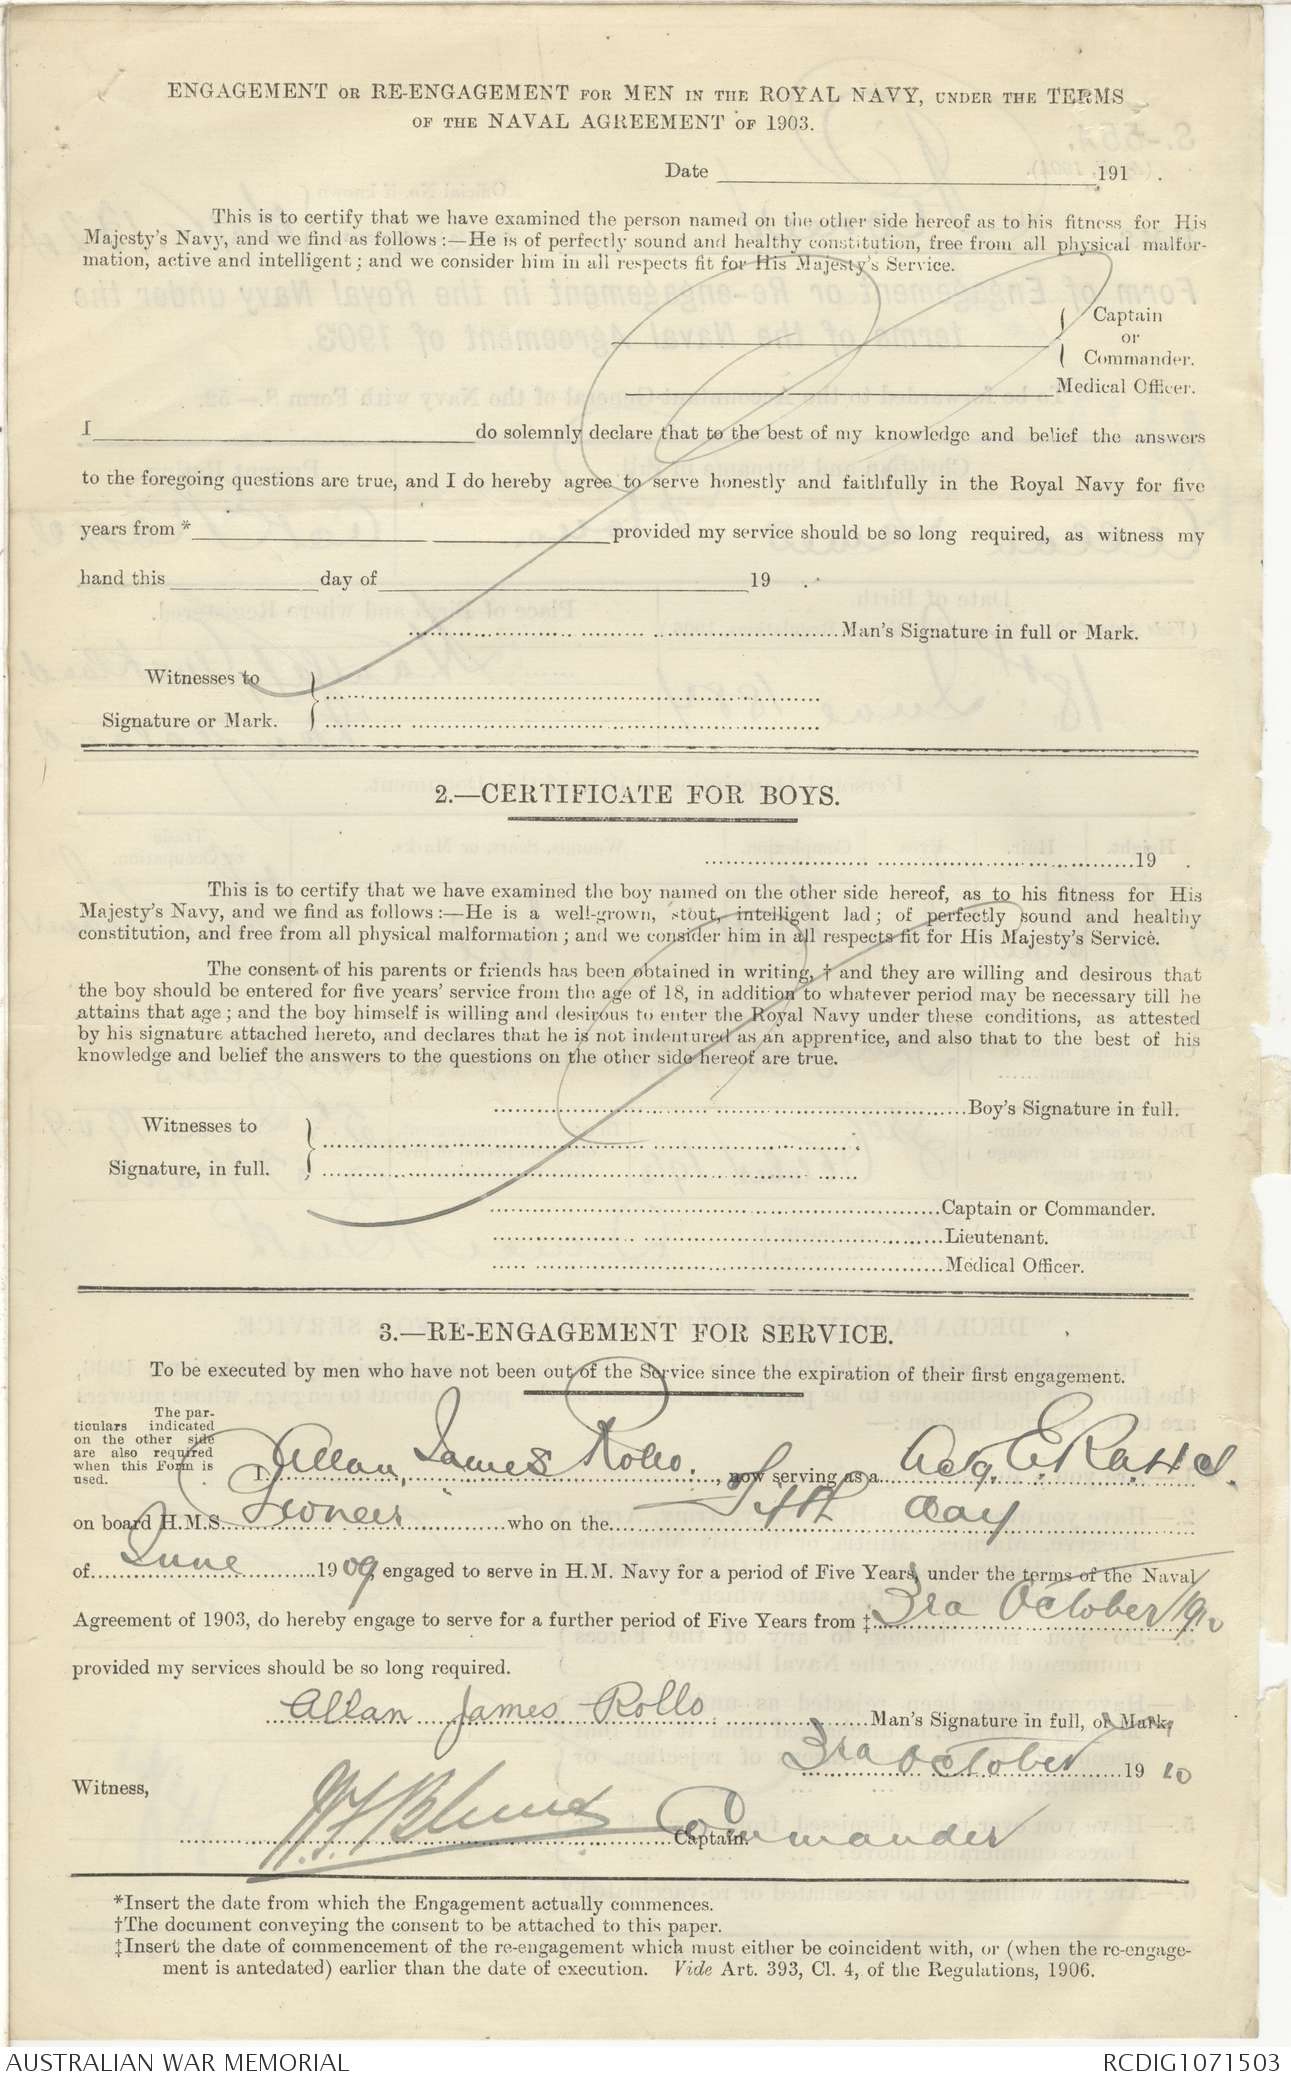 ENGAGEMENT OR RE-ENGAGEMENT FOR MEN IN THE ROYAL NAVY, UNDER THE TERMS
OF THE NAVAL AGREEMENT OF 1903.
Date 191 .
This is to certify that we have examined the person named on the other side hereof as to his fitness for His
Majesty's Navy, and we find as follows :—He is of perfectly sound and healthy constitution, free from all physical malfor-
mation, active and intelligent ; and we consider him in all respects fit for His Majesty's Service.
Captain
or
Commander.
Medical Officer.
I do solemnly declare that to the best of my knowledge and belief the answers
to the foregoing questions are true, and I do hereby agree to serve honestly and faithfully in the Royal Navy for five
years from * provided my service should be so long required, as witness my
hand this day of 19 .
Man's Signature in full or Mark.
Witnesses to
Signature or Mark.
2.—CERTIFICATE FOR BOYS.
19 .
This is to certify that we have examined the boy named on the other side hereof, as to his fitness for His
Majesty's Navy, and we find as follows :—He is a well-grown, stout, intelligent lad ; of perfectly sound and healthy
constitution, and free from all physical malformation ; and we consider him in all respects fit for His Majesty's Service.
The consent of his parents or friends has been obtained in writing, † and they are willing and desirous that
the boy should be entered for five years' service from the age of 18, in addition to whatever period may be necessary till he
attains that age ; and the boy himself is willing and desirous to enter the Royal Navy under these conditions, as attested
by his signature attached hereto, and declares that he is not indentured as an apprentice, and also that to the best of his
knowledge and belief the answers to the questions on the other side hereof are true.
Boy's Signature in full.
Witnesses to
Signature, in full.
Captain or Commander.
Lieutenant.
Medical Officer.
3.—RE-ENGAGEMENT FOR SERVICE.
To be executed by men who have not been out of the Service since the expiration of their first engagement.
The par-
ticulars indicated
on the other side
are also required
when this Form is
used.
I, Allan James Rollo, now serving as a Actg E.R.A. 4 Cl.
on board H.M.S. Pioneer who on the Fifth day
of June 1909 engaged to serve in H.M. Navy for a period of Five Years, under the terms of the Naval
Agreement of 1903, do hereby engage to serve for a further period of Five Years from ‡ 3rd October 1910
provided my services should be so long required.
Allan James Rollo Man's Signature in full, or Mark.
3rd October 1910
Witness,
Captain. Commander
*Insert the date from which the Engagement actually commences.
†The document conveying the consent to be attached to this paper.
‡Insert the date of commencement of the re-engagement which must either be coincident with, or (when the re-engage-
ment is antedated) earlier than the date of execution. Vide Art. 393, Cl. 4, of the Regulations, 1906.
AUSTRALIAN WAR MEMORIAL
RCDIG1071503